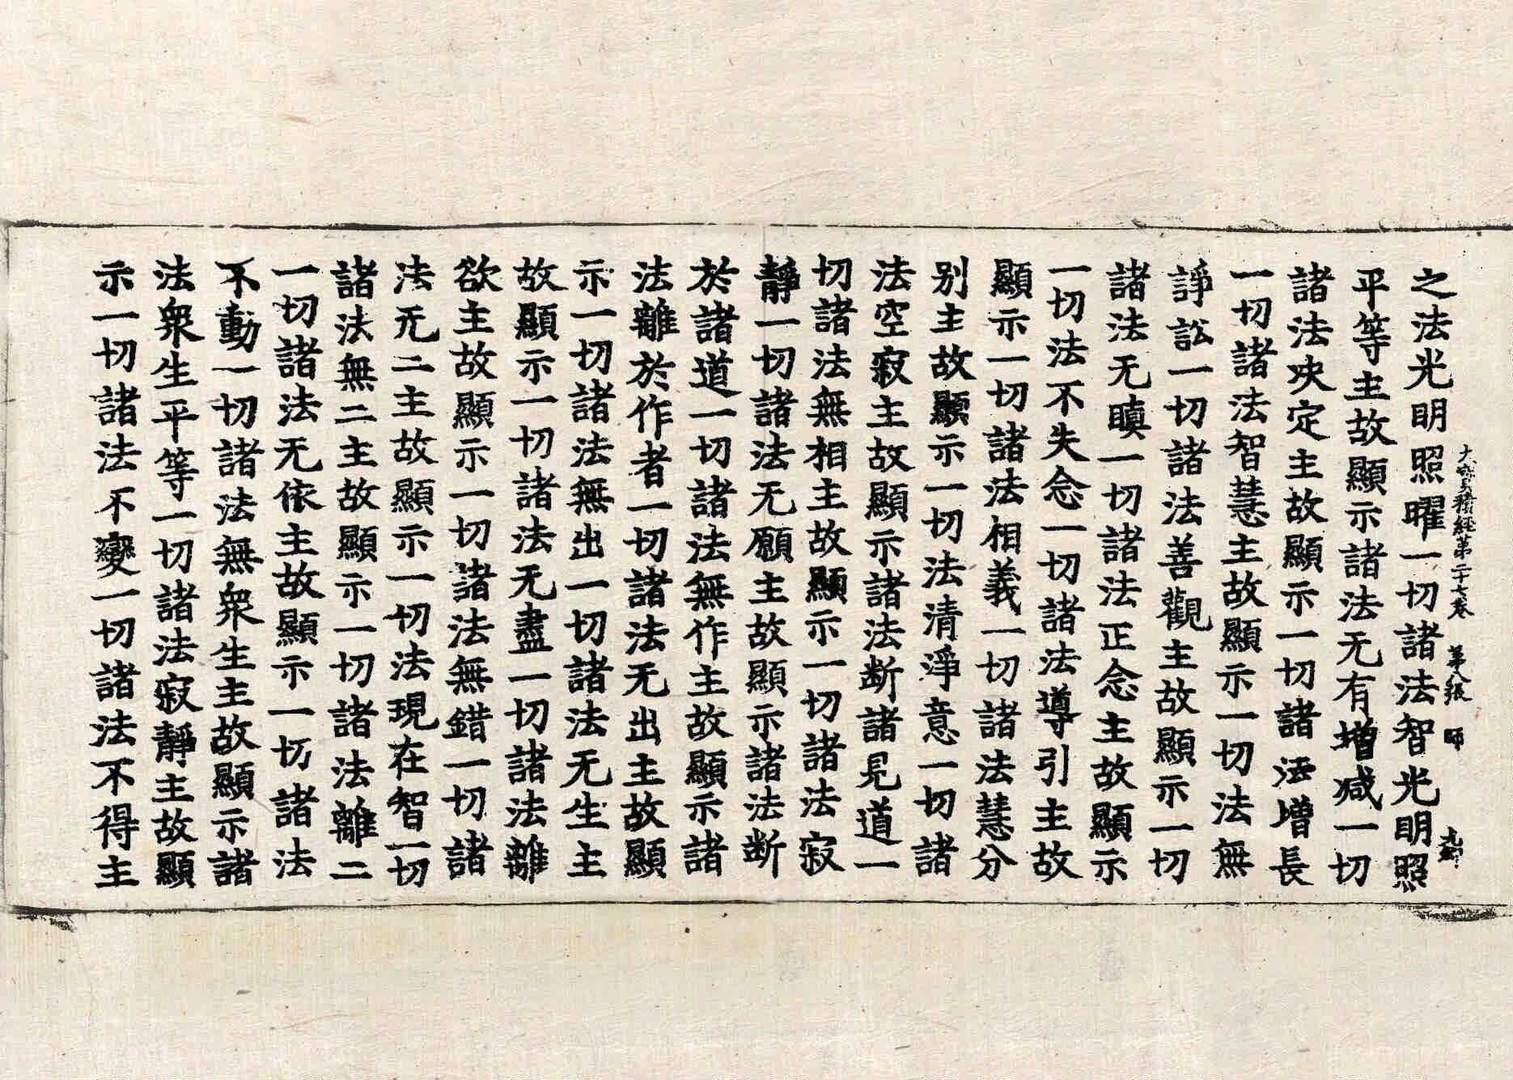 大寶積經第二十七卷　第八張　師
之法光明照曜一切諸法智光明照
平等主故顯示諸法无有增減一切
諸法決定主故顯示一切諸法增長
一切諸法智慧主故顯示一切法無
諍訟一切諸法善觀主故顯示一切
諸法无瞋一切諸法正念主故顯示
一切法不失念一切諸法導引主故
顯示一切諸法相義一切諸法慧分
别主故顯示一切法清淨意一切諸
法空寂主故顯示諸法断諸見道一
切諸法無相主故顯示一切諸法寂
靜一切諸法无願主故顯示諸法断
於諸道一切諸法無作主故顯示諸
法離於作者一切諸法无出主故顯
示一切諸法無出一切諸法无生主
故顯示一切諸法无盡一切諸法離
欲主故顯示一切諸法無錯一切諸
法无二主故顯示一切法現在智一切
諸法無二主故顯示一切諸法離二
一切諸法无依主故顯示一切諸法
不動一切諸法無衆生主故顯示諸
法衆生平等一切諸法寂靜主故顯
示一切諸法不變一切諸法不得主